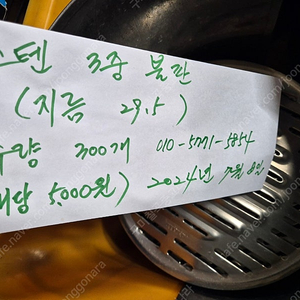 스텐 3중 불판
(지름 29.5)
수량 300개 010-5771-5854
개당 5,000원) 2024년 7월 8일